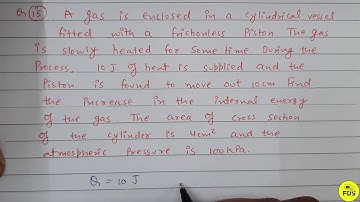 Q 15 A gas is enclosed in a cylindrical vessel
fitted with a frictionless Piston The gas
is slowly heated for Some time During the
Process, 10 J of heat is supplied and the
Piston is found to move out 10cm Find
the increase in the internal energy
of the gas The area of cross section
of the cylinder is 4cm² and the
atmospheric Pressure is 100kPa.
Q = 10 J
FDS